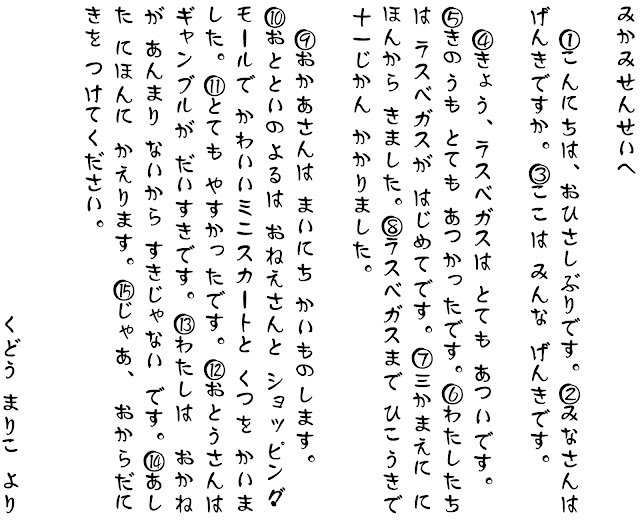 みかみせんせいへ
①こんにちは、おひさしぶりです。②みなさんは
げんきですか。③ここは みんな げんきです。
④きょう、ラスベガスは とても あついです。
⑤きのうも とても あつかったです。⑥わたしたち
は ラスベガスが はじめてです。⑦三かまえに に
ほんから きました。⑧ラスベガスまで ひこうきで
十一じかん かかりました。
⑨おかあさんは まいにち かいものします。
⑩おとといのよるは おねえさんと ショッピング
モールで かわいいミニスカートと くつを かいま
した。⑪とても やすかったです。⑫おとうさんは
ギャンブルが だいすきです。⑬わたしは おかね
が あんまり ないから すきじゃない です。⑭あし
た にほんに かえります。⑮じゃあ、 おからだに
きを つけてください。
くどう まりこ より